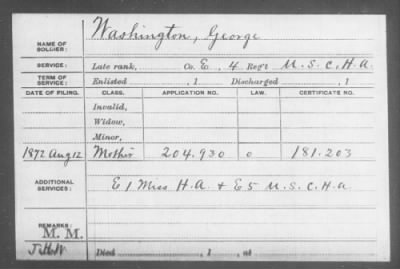 Washington, George
NAME OF SOLDIER:
SERVICE: Late rank, Co. E, 4 Reg't U.S.C.H.A.
TERM OF SERVICE: Enlisted , 1 Discharged , 1
DATE OF FILING. CLASS. APPLICATION NO. LAW. CERTIFICATE NO.
Invalid,
Widow,
Minor,
1872 Aug 12 Mother 204.930 0 181.203
ADDITIONAL SERVICES: E 1 Miss H.A. & E 5 U.S.C.H.A.
REMARKS:
M. M.
Died , 1 , at